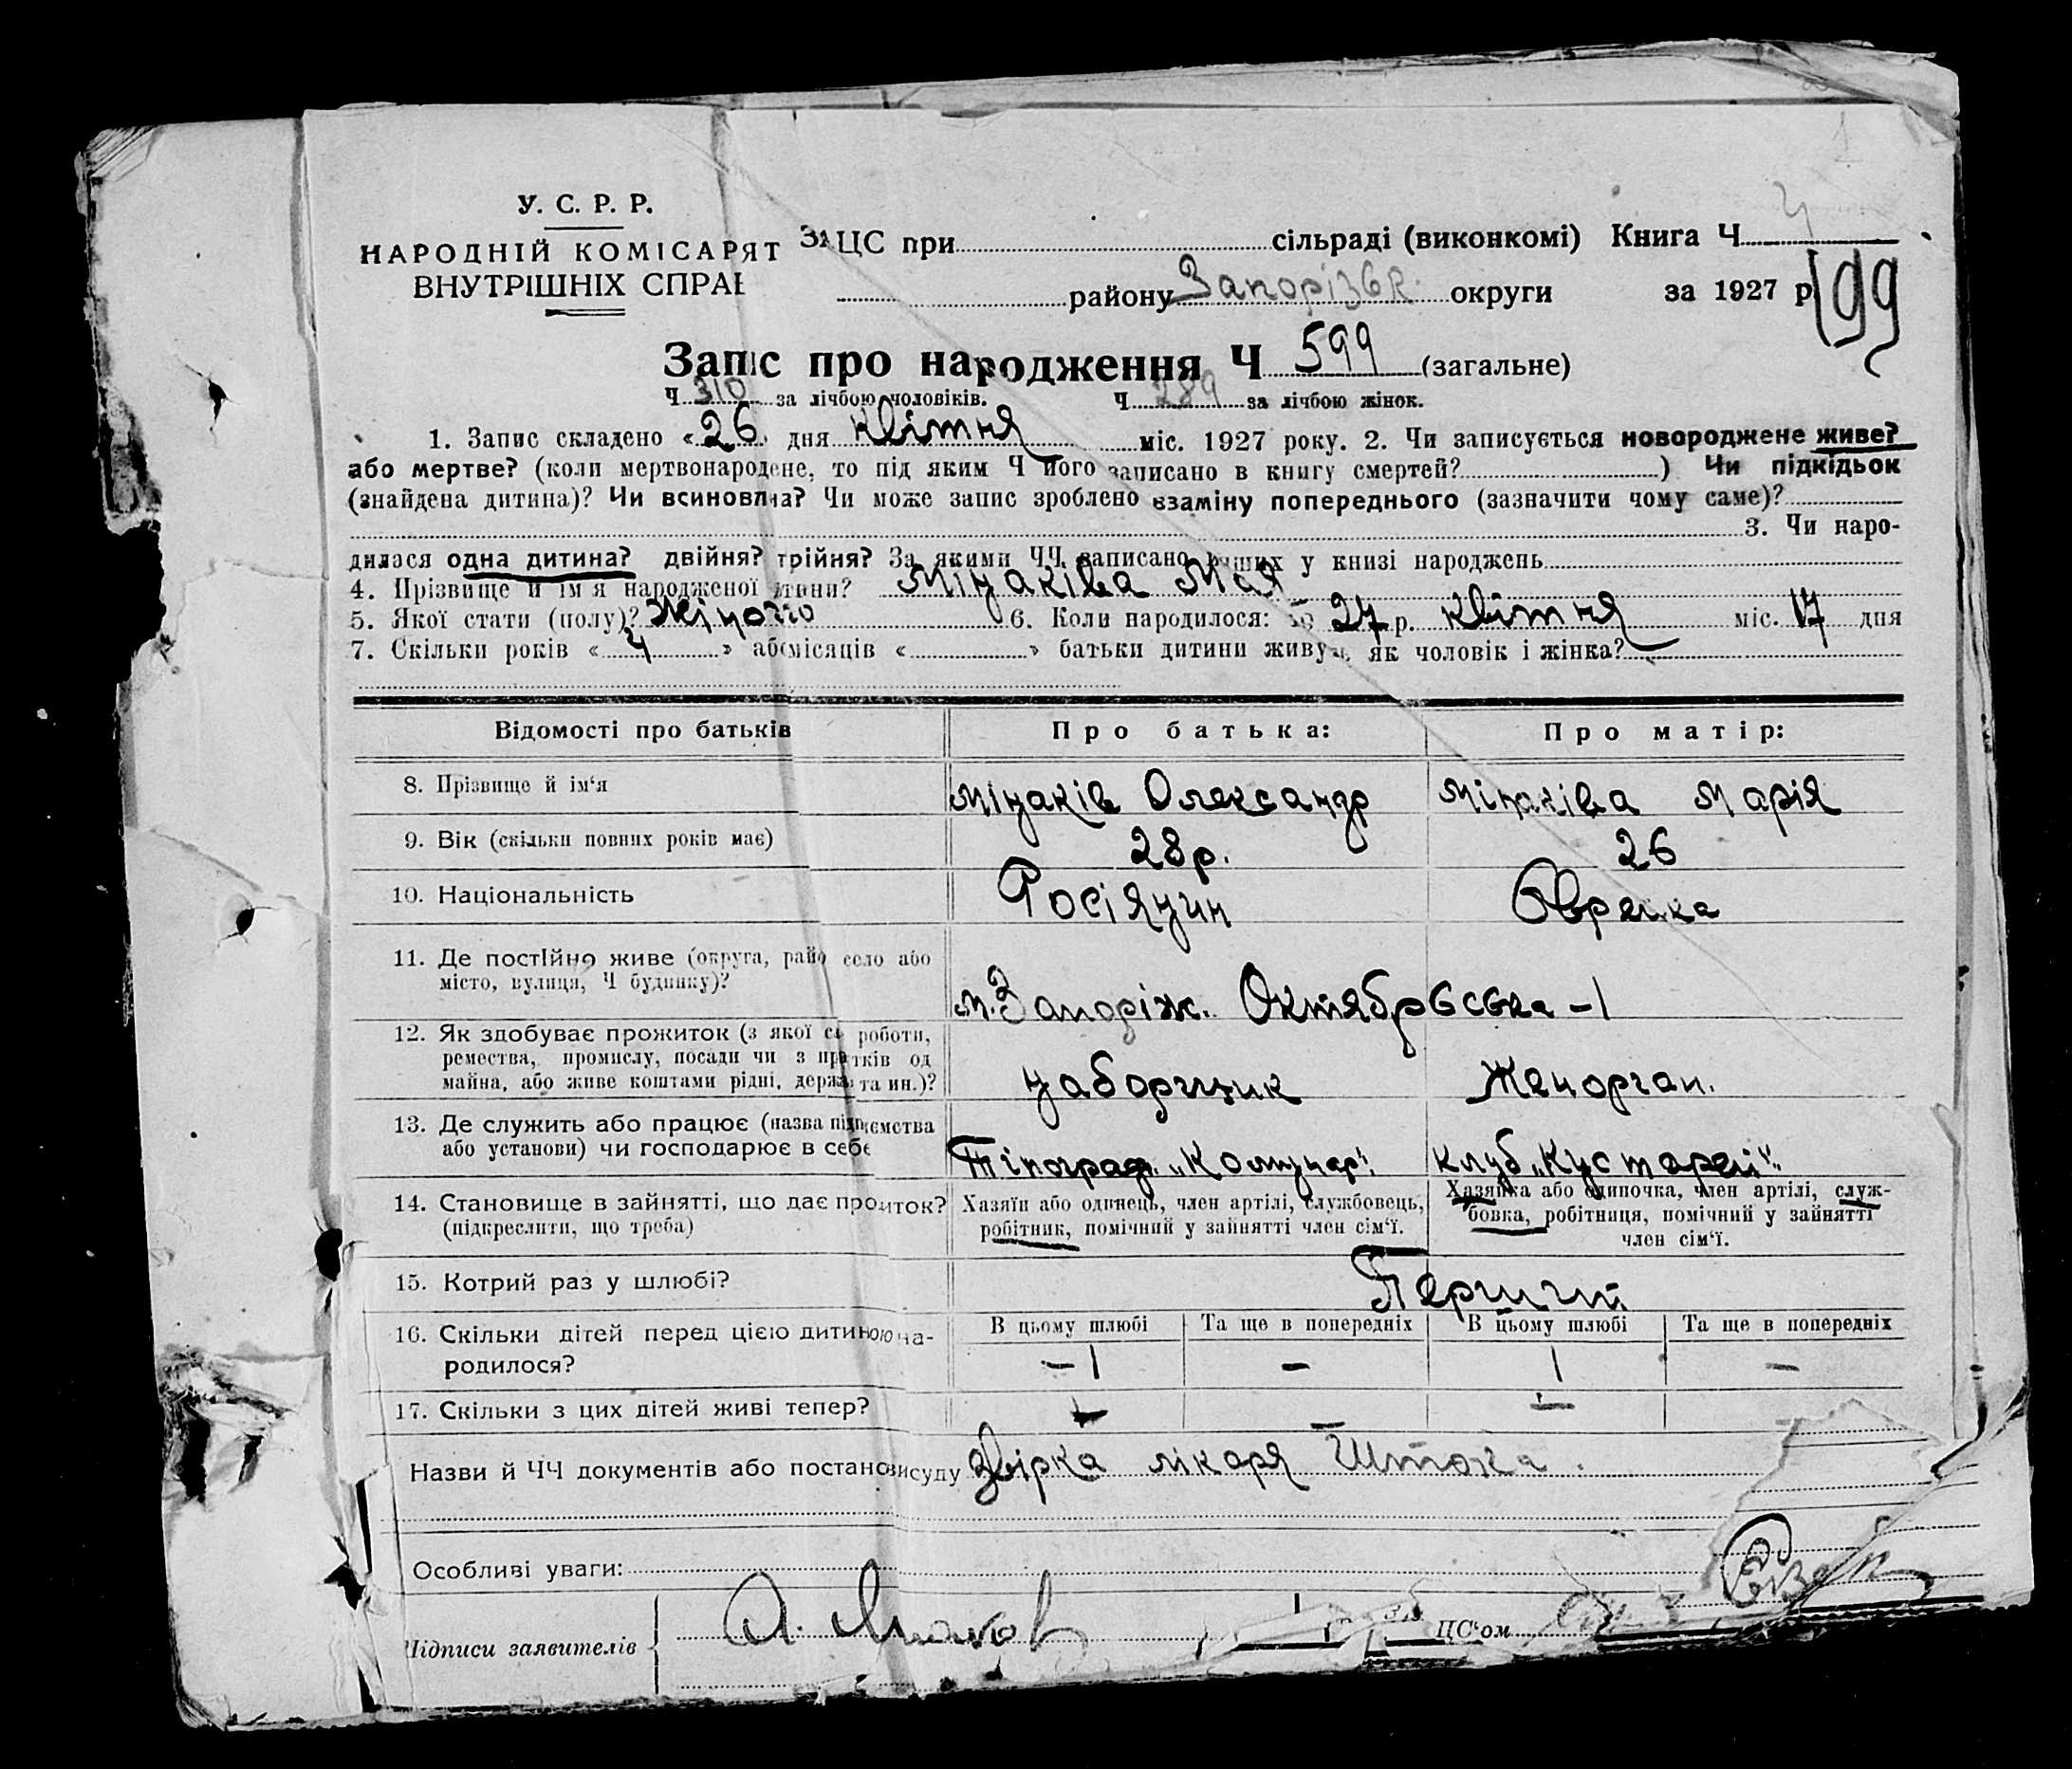 У. С. Р. Р.
НАРОДНІЙ КОМІСАРЯТ
ВНУТРІШНІХ СПРАВ
ЗАЦС при сільраді (виконкомі) Книга Ч 4
району Запорізьк. округи за 1927 р.
199
Запис про народження Ч 599 (загальне)
Ч 310 за лічбою чоловіків. Ч 289 за лічбою жінок.
1. Запис складено «26» дня квітня міс. 1927 року. 2. Чи записується новороджене живе?
або мертве? (коли мертвонароджене, то під яким Ч його записано в книгу смертей? ) Чи підкідьок
(знайдена дитина)? Чи всиновлена? Чи може запис зроблено взаміну попереднього (зазначити чому саме)?
3. Чи наро-
дилася одна дитина? двійня? трійня? За якими ЧЧ записано інших у книзі народжень
4. Прізвище й ім'я народженої дитини? Мінаківа Мая
5. Якої стати (полу)? жіночо 6. Коли народилося: 19 27 р. квітня міс. 17 дня
7. Скільки років « 4 » або місяців « » батьки дитини живуть, як чоловік і жінка?
Відомості про батьків Про батька: Про матір:
8. Прізвище й ім'я Мінаків Олександр Мінаківа Марія
9. Вік (скільки повних років має) 28 р. 26
10. Національність Росіянин Єврейка
11. Де постійно живе (округа, район село або
місто, вулиця, Ч будинку)? м. Запоріж. Октябрська – 1
12. Як здобуває прожиток (з якої роботи,
ремества, промислу, посади чи з прибутків од
майна, або живе коштами рідні, держ. та ин.)? наборщик Женорган.
13. Де служить або працює (назва підприємства
або установи) чи господарює в себе Тіпограф. „Комунар". клуб „Кустарей".
14. Становище в зайнятті, що дає прожиток?
(підкреслити, що треба)
Хазяїн або одинець, член артілі, службовець,
робітник, помічний у зайнятті член сім'ї.
Хазяйка або одиночка, член артілі, служ-
бовка, робітниця, помічний у зайнятті
член сім'ї.
15. Котрий раз у шлюбі? Перший
16. Скільки дітей перед цією дитиною на-
родилося?
В цьому шлюбі Та ще в попередніх В цьому шлюбі Та ще в попередніх
– 1 – 1 –
17. Скільки з цих дітей живі тепер?
Назви й ЧЧ документів або постанов висуду звірка лікаря Штока.
Особливі уваги:
Підписи заявителів А. Минаков ЦС'ом